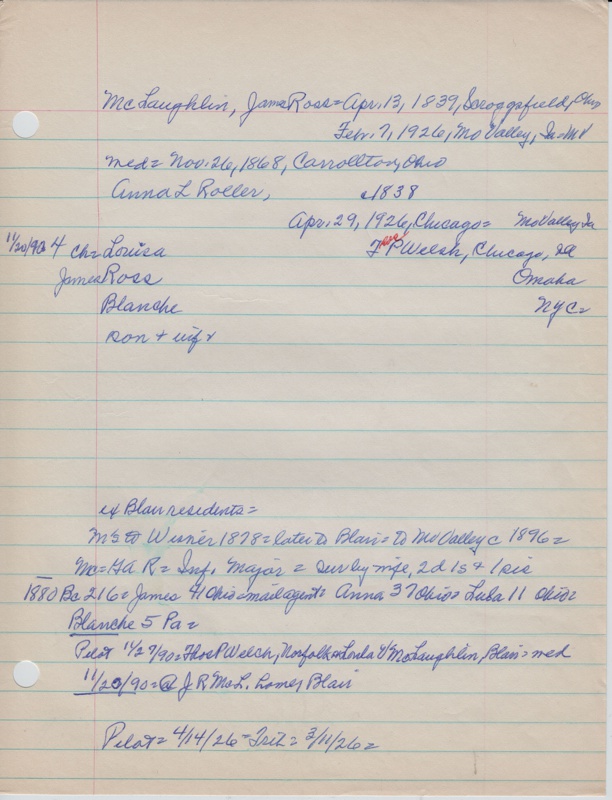 McLaughlin, James Ross = Apr. 13, 1839, Scroggsfield, Ohio
Febr. 7, 1926, Mo Valley, Ia. MV
med = Nov. 26, 1868, Carrollton, Ohio
Anna L Roller, c1838
Apr. 29, 1926, Chicago = MoValley, Ia
11/20/90 4 ch = Louisa F P Welsh, Chicago, Ill
James Ross Omaha
Blanche NYC =
son + wife
ex Blair residents =
M's to Wisner 1878 = later to Blair = to Mo Valley c 1896 =
Mc = GA R = Inf. Major = sur by wife, 2d 1s + 1 sis
1880 Bc 216 = James 41 Ohio = mail agent = Anna 37 Ohio = Luba 11 Ohio =
Blanche 5 Pa =
Pilot 11/27/90 = Thos P Welch, Norfolk = Loula V McLaughlin, Blair = med
11/20/90 = @ J. R. McL. homes Blair
Pilot = 4/14/26 = Trib = 3/11/26 =